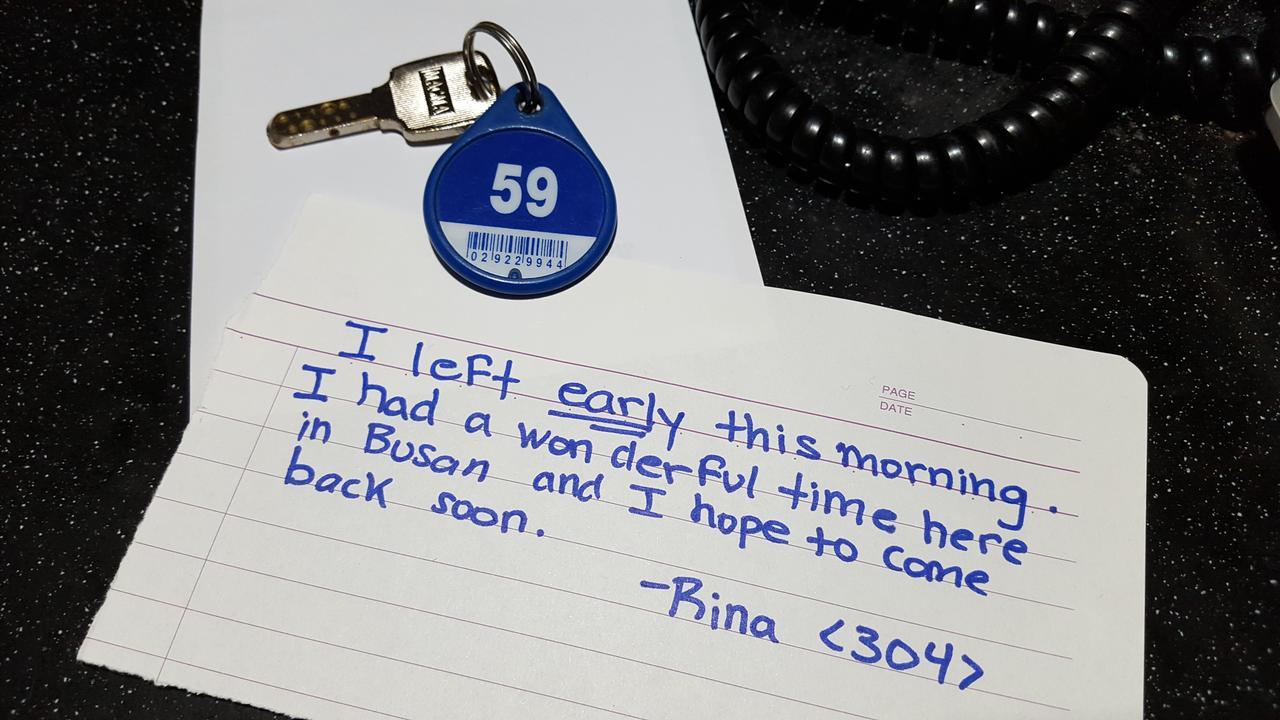 59
029229944
PAGE
DATE
I left early this morning.
I had a wonderful time here
in Busan and I hope to come
back soon.
-Rina <304>